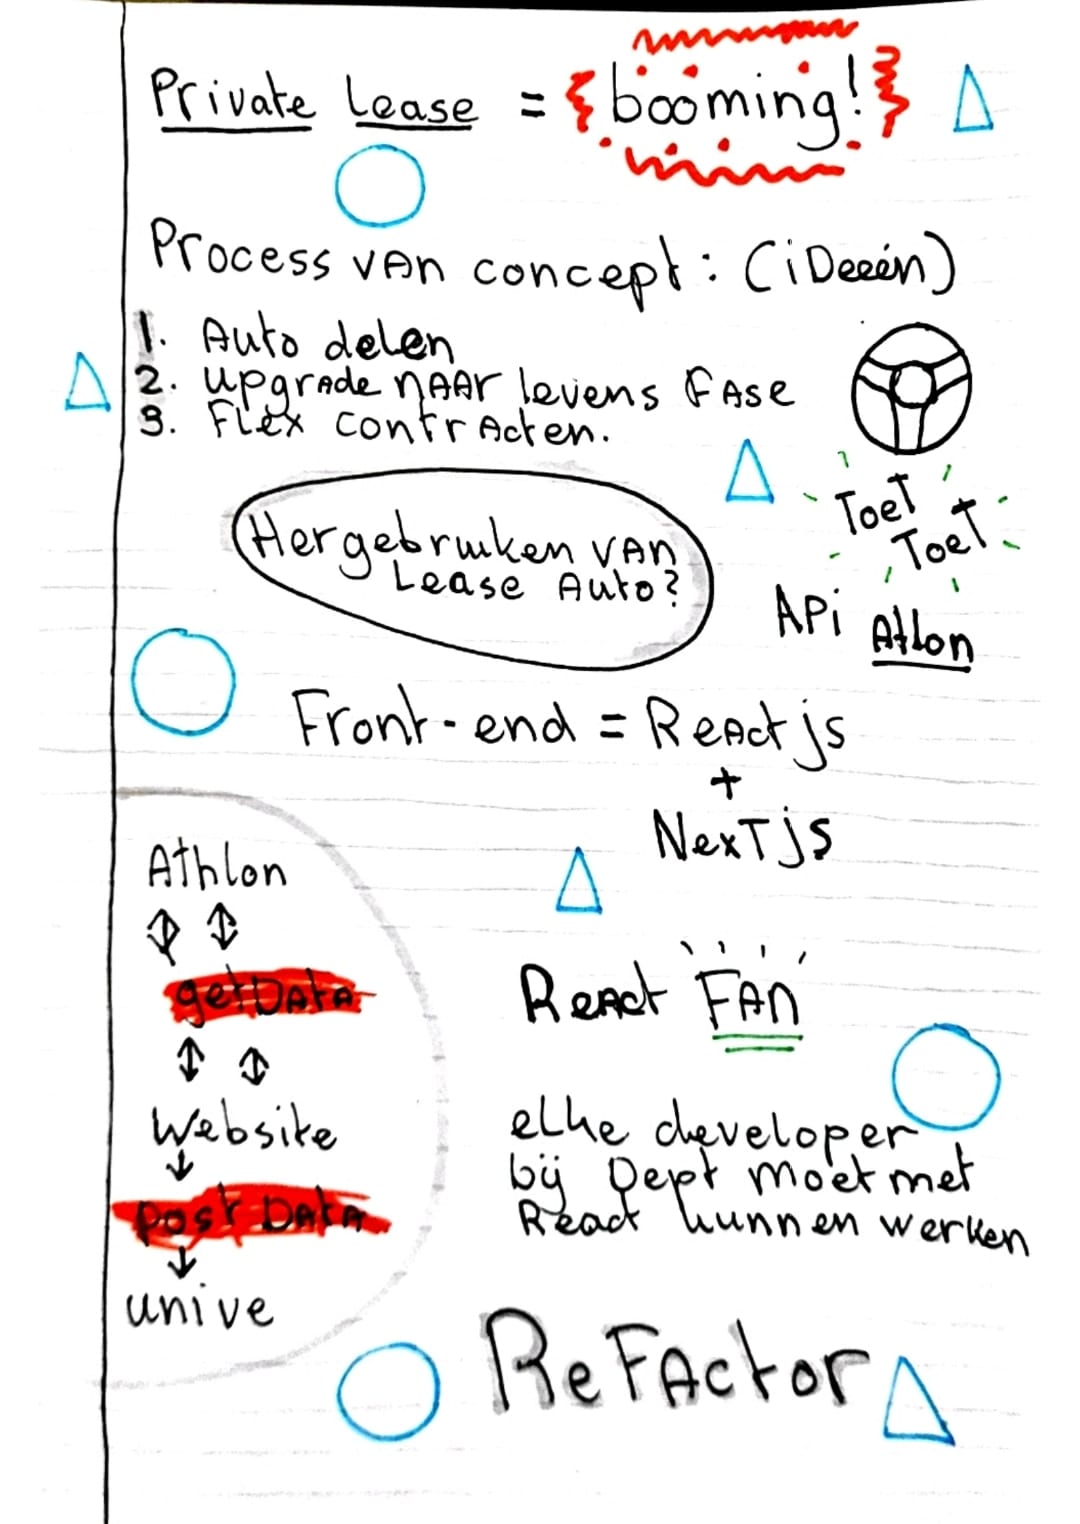 Private Lease = {booming!}
Process van concept: (iDeeén)
1. Auto delen
2. upgrade naar levens fase
3. Flex contracten.
Toet
Toet
Hergebruiken van
Lease Auto?
Api Atlon
Front-end = React js
+
Nextjs
Athlon
getData
React Fan
website
elke developer
bij Dept moet met
React kunnen werken
post Data
unive
Refactor